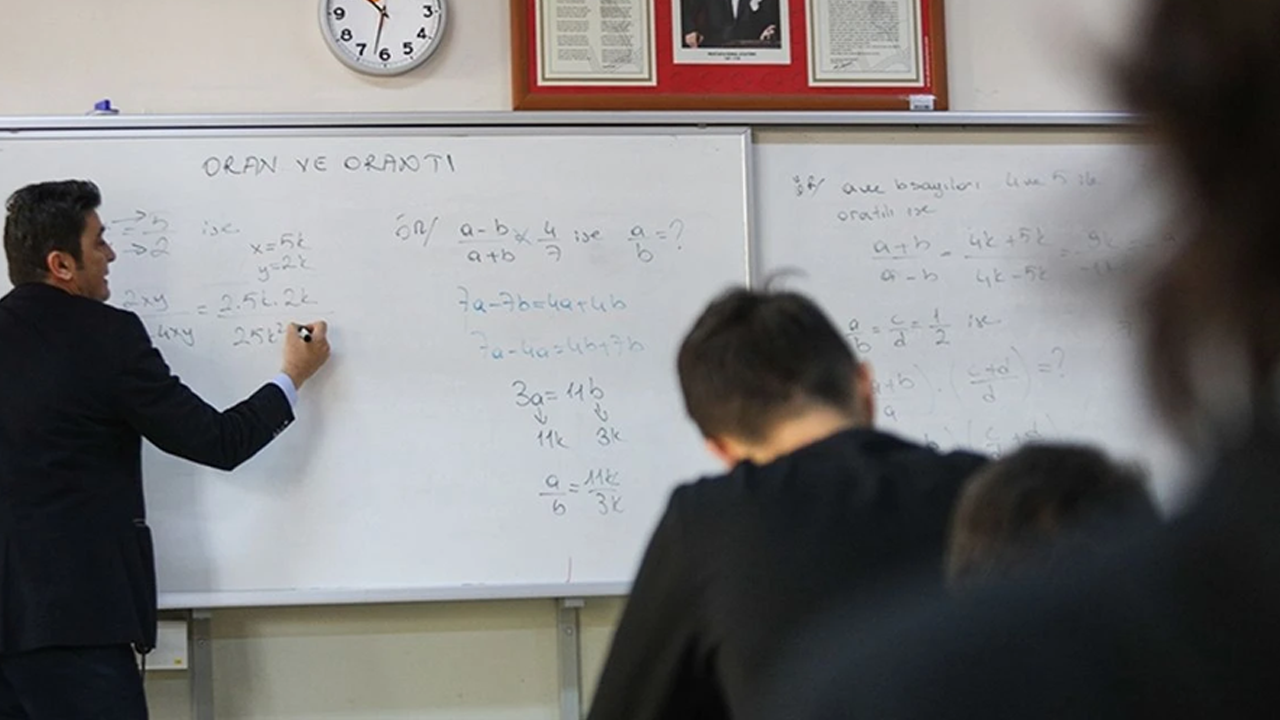 9 3
8 4
7 6 5
ORAN VE ORANTI
→5
→2
ise
x=5k
y=2k
2xy = 2.5k.2k
4xy 25k²
ÖR/ a-b / a+b × 4/7 ise a/b=?
7a-7b=4a+4b
7a-4a=4b+7b
3a=11b
11k 3k
a/b=11k/3k
ÖR/ a ve b sayıları 4 ve 5 ile
orantılı ise
a+b / a-b = 4k+5k / 4k-5k = 9k
a/b=c/d=1/2 ise
(a+b / a).(c+d / d)=?